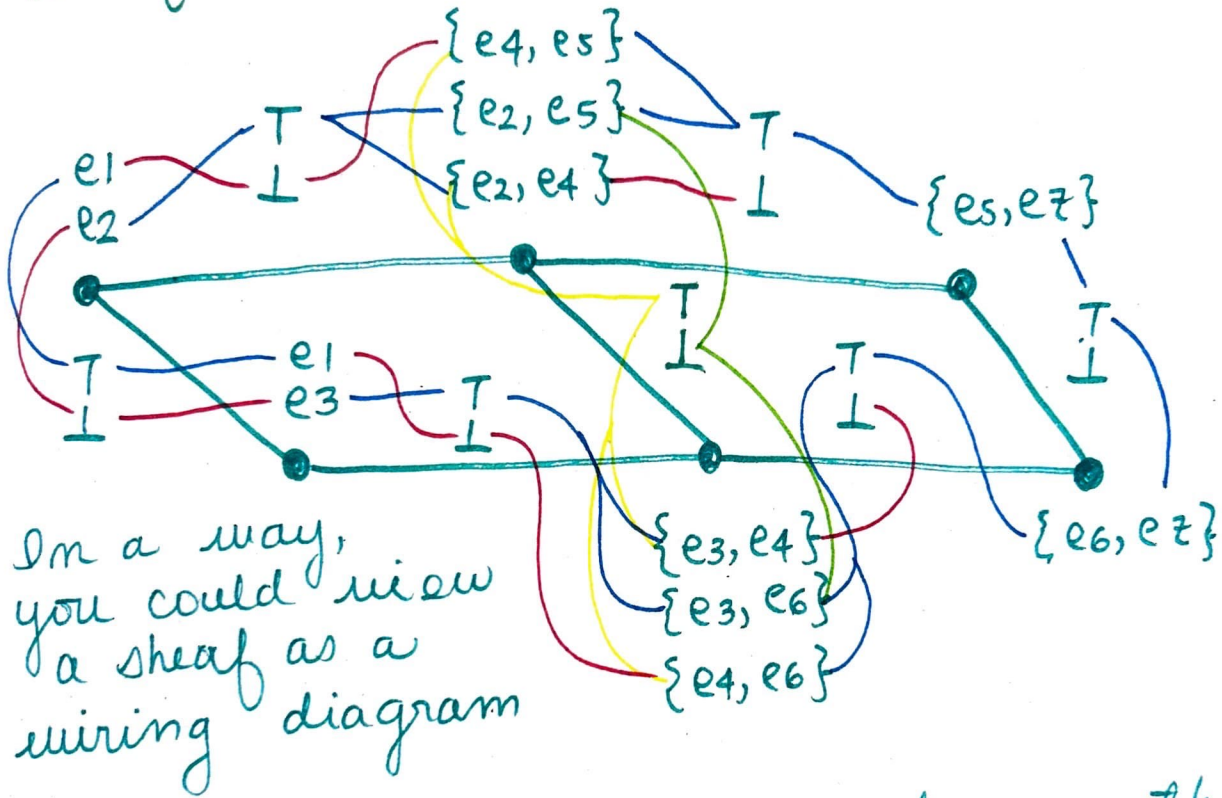 {e4, e5}
{e2, e5}
{e2, e4}
⊤
⊥
e1
e2
⊤
⊥
{e5, e7}
⊤
⊥
⊤
⊥
⊤
⊥
e1
e3
⊤
⊥
⊤
⊥
{e3, e4}
{e3, e6}
{e4, e6}
{e6, e7}
In a way,
you could view
a sheaf as a
wiring diagram